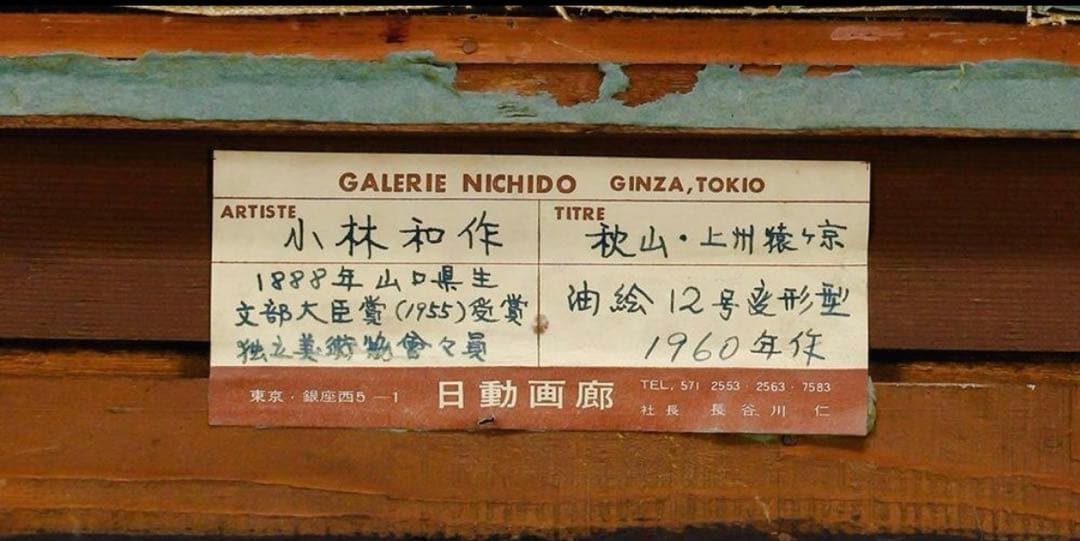 GALERIE NICHIDO GINZA,TOKIO
ARTISTE
小林和作
1888年山口県生
文部大臣賞(1955)受賞
独立美術協會々員
TITRE
秋山・上州猿ヶ京
油絵12号変形型
1960年作
東京・銀座西5-1
日動画廊
TEL, 571 2553・2563・7583
社長 長谷川仁